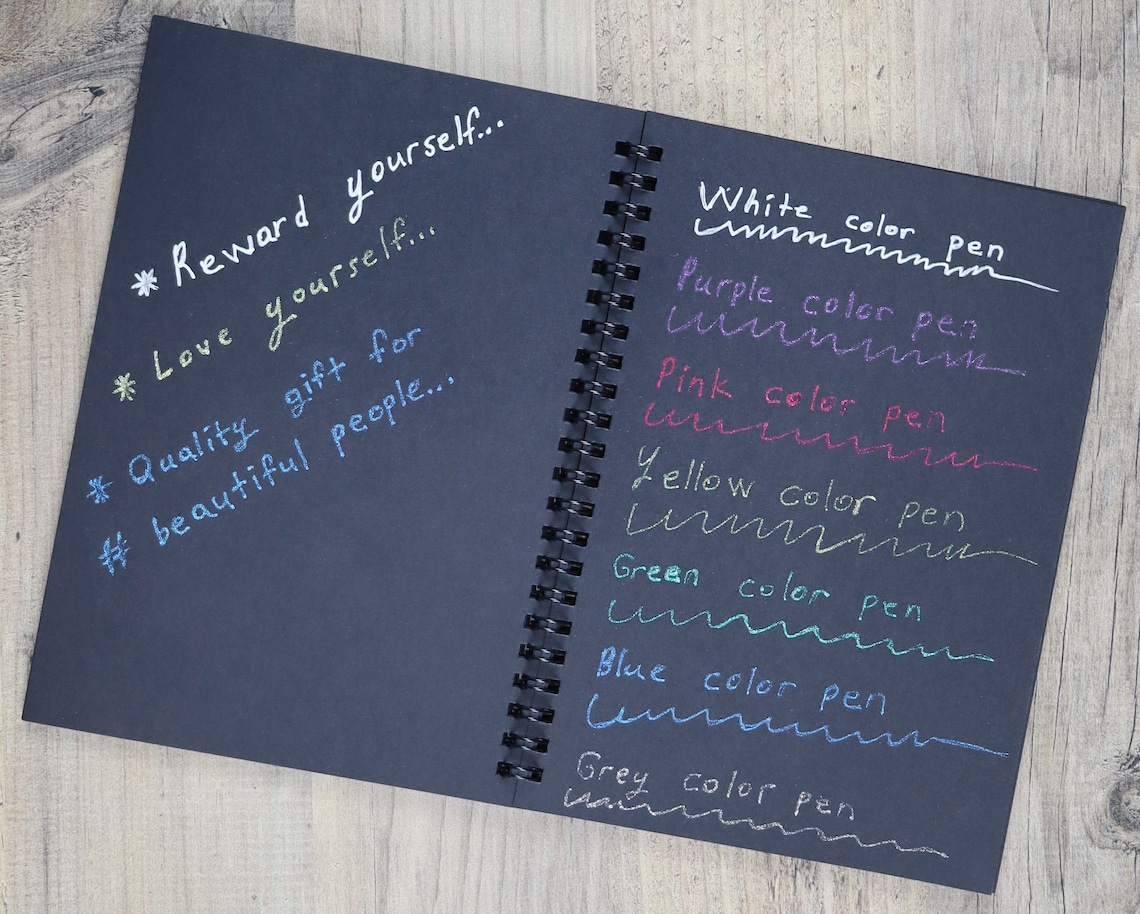 * Reward yourself...
* Love yourself...
* Quality gift for
# beautiful people...
White color pen
Purple color pen
Pink color pen
Yellow color pen
Green color pen
Blue color pen
Grey color pen